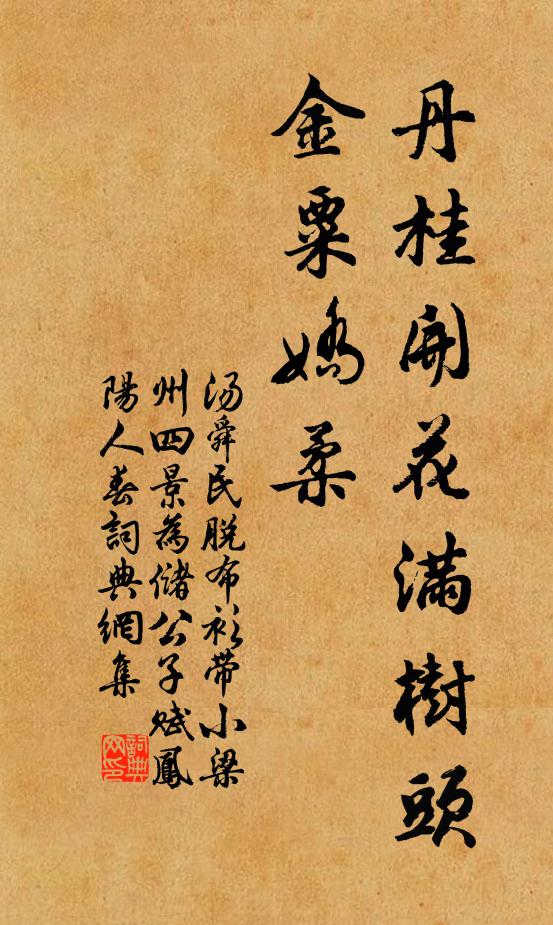 丹桂開花滿樹頭
金粟嬌柔
湯舜民脫布衫帶小梁
州四景為儲公子賦鳳
陽人春詞典網集
詞典
网印